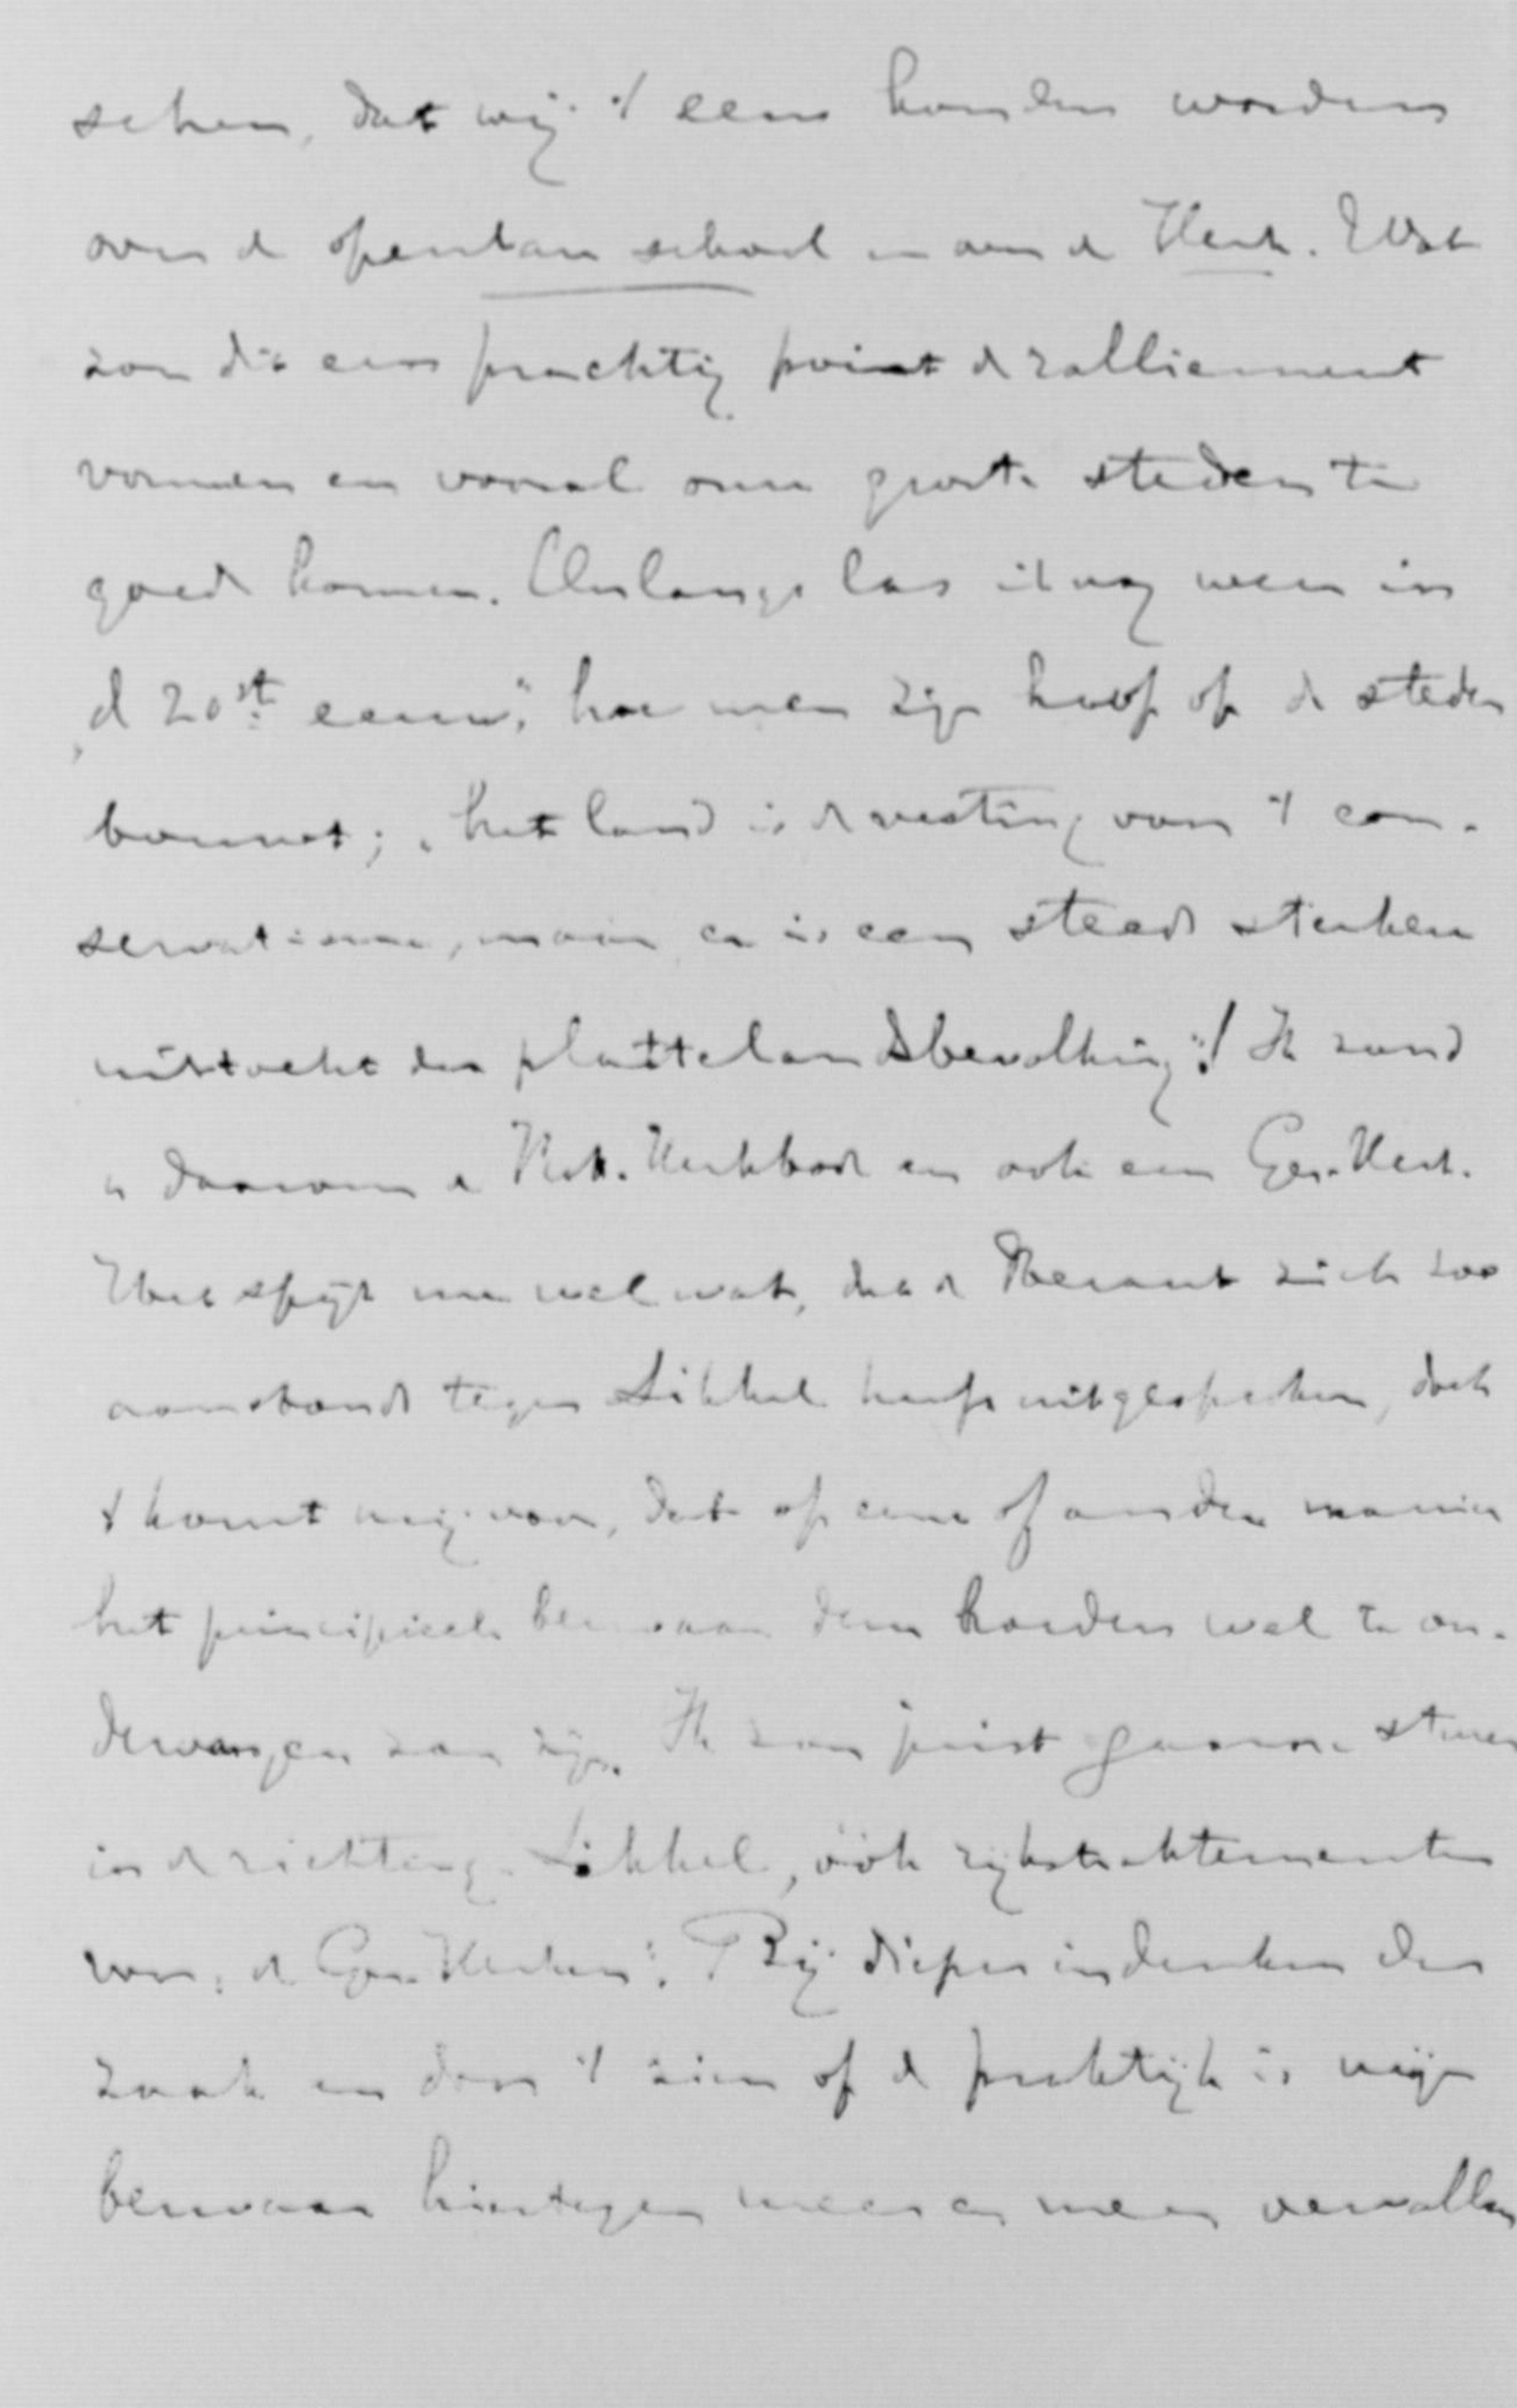 schen, dat wij 't eens konden worden
over de openbare school en over de Kerk. Wat
zou dit een prachtig point de ralliement
vormen en vooral onze groote steden te
goed komen. Onlangs las ik nog weer in
„de 20ste eeuw", hoe men zijn hoop op de steden
bouwt; „het land is de vesting van 't con-
servatisme, maar er is een steeds sterkere
uittocht der plattelandsbevolking"! Ik zond
u daarom a Rott. Kerkbode en ook een Ger. Kerk.
Wel spijt me wel wat, dat de zich zoo
aanstonds tegen Sikkel heeft uitgesproken, doch
't komt mij voor, dat op eene of andere manier
het principieele bezwaar dezer broeders wel te on-
dervangen zou zijn. Ik zou juist gaarne sturen
in de richting-Sikkel, „óók rijkstraktementen
voor de Ger. Kerken". Bij dieper indenken der
zaak en door 't zien op de praktijk is mijn
bezwaar hiertegen meer en meer vervallen